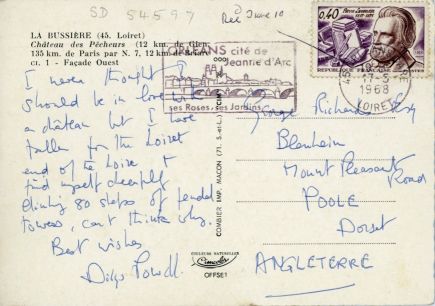 SD 54597
Recd June 10
LA BUSSIÈRE (45. Loiret)
Château des Pêcheurs (12 km. de Gien,
135 km. de Paris par N. 7, 12 km. de Briare
cr. 1 - Façade Ouest
I never thought I
should be in love with
a château but I have
fallen for the Loiret
end of the Loire &
find myself cheerfully
climbing 80 steps of feudal
towers, can't think why.
Best wishes
Dilys Powell.
COMBIER IMP. MACON (71. S.-et-L.)
COULEURS NATURELLES
OFFSET
ORLEANS cité de
Jeanne d'Arc
ses Roses. ses Jardins
0,40
POSTES
17-5
1968
LOIRET
George Richards Esq
Blenheim
Mount Pleasant
Road
POOLE
Dorset
ANGLETERRE